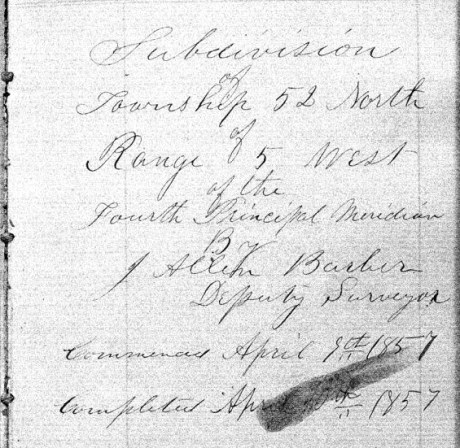 Subdivision
of
Township 52 North
of
Range 5 West
of the
Fourth Principal Meridian
By
J Allen Barber
Deputy Surveyor
Commenced April 9th 1857
Completed April th 1857